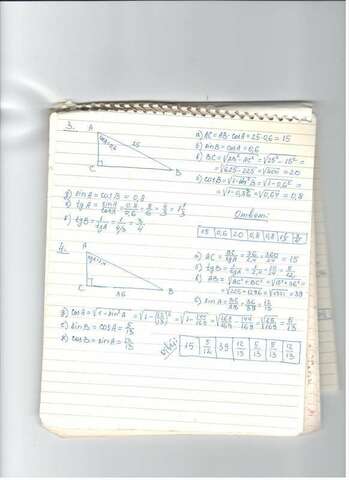 3.
A
cosA=0,6
25
C
B
а) AC = AB · cosA = 25 · 0,6 = 15
б) sinB = cosA = 0,6
в) BC = √25² - AC² = √25² - 15² =
= √625 - 225 = √400 = 20
г) cosB = √1 - sin²B = √1 - 0,6² =
= √1 - 0,36 = √0,64 = 0,8
д) sinA = cosB = 0,8
е) tgA = sinA/cosA = 0,8/0,6 = 8/6 = 4/3 = 1 1/3
ж) tgB = 1/tgA = 1/4/3 = 3/4
Ответ:
15 | 0,6 | 20 | 0,8 | 0,8 | 1 1/3 | 3/4
4.
A
C
36
B
а) AC = BC/tgA = 36/2,4 = 360/24 = 15
б) tgB = 1/tgA = 1/2,4 = 10/24 = 5/12
в) AB = √AC² + BC² = √15² + 36² =
= √225 + 1296 = √1521 = 39
г) sinA = 36/39 = 12/13
д) cosA = √1 - sin²A = √1 - (12/13)² = √1 - 144/169 = √169/169 - 144/169 = √25/169 = 5/13
е) sinB = cosA = 5/13
ж) cosB = sinA = 12/13
15 | 5/12 | 39 | 12/13 | 5/13 | 5/13 | 12/13